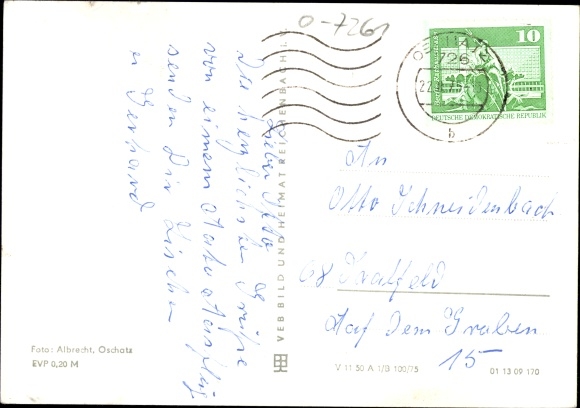 O-7261
Lieber Otto
Die herzlichsten Grüße
von einem Autoausflug
senden Dir Lieschen
u Gerhard
VEB BILD UND HEIMAT REICHENBACH I. V.
Foto: Albrecht, Oschatz
EVP 0,20 M
10
DEUTSCHE DEMOKRATISCHE REPUBLIK
OSCHATZ
726
b
An
Otto Schneidenbach
68 Saalfeld
Auf dem Graben
15
V 11 50 A 1/B 100/75
01 13 09 170